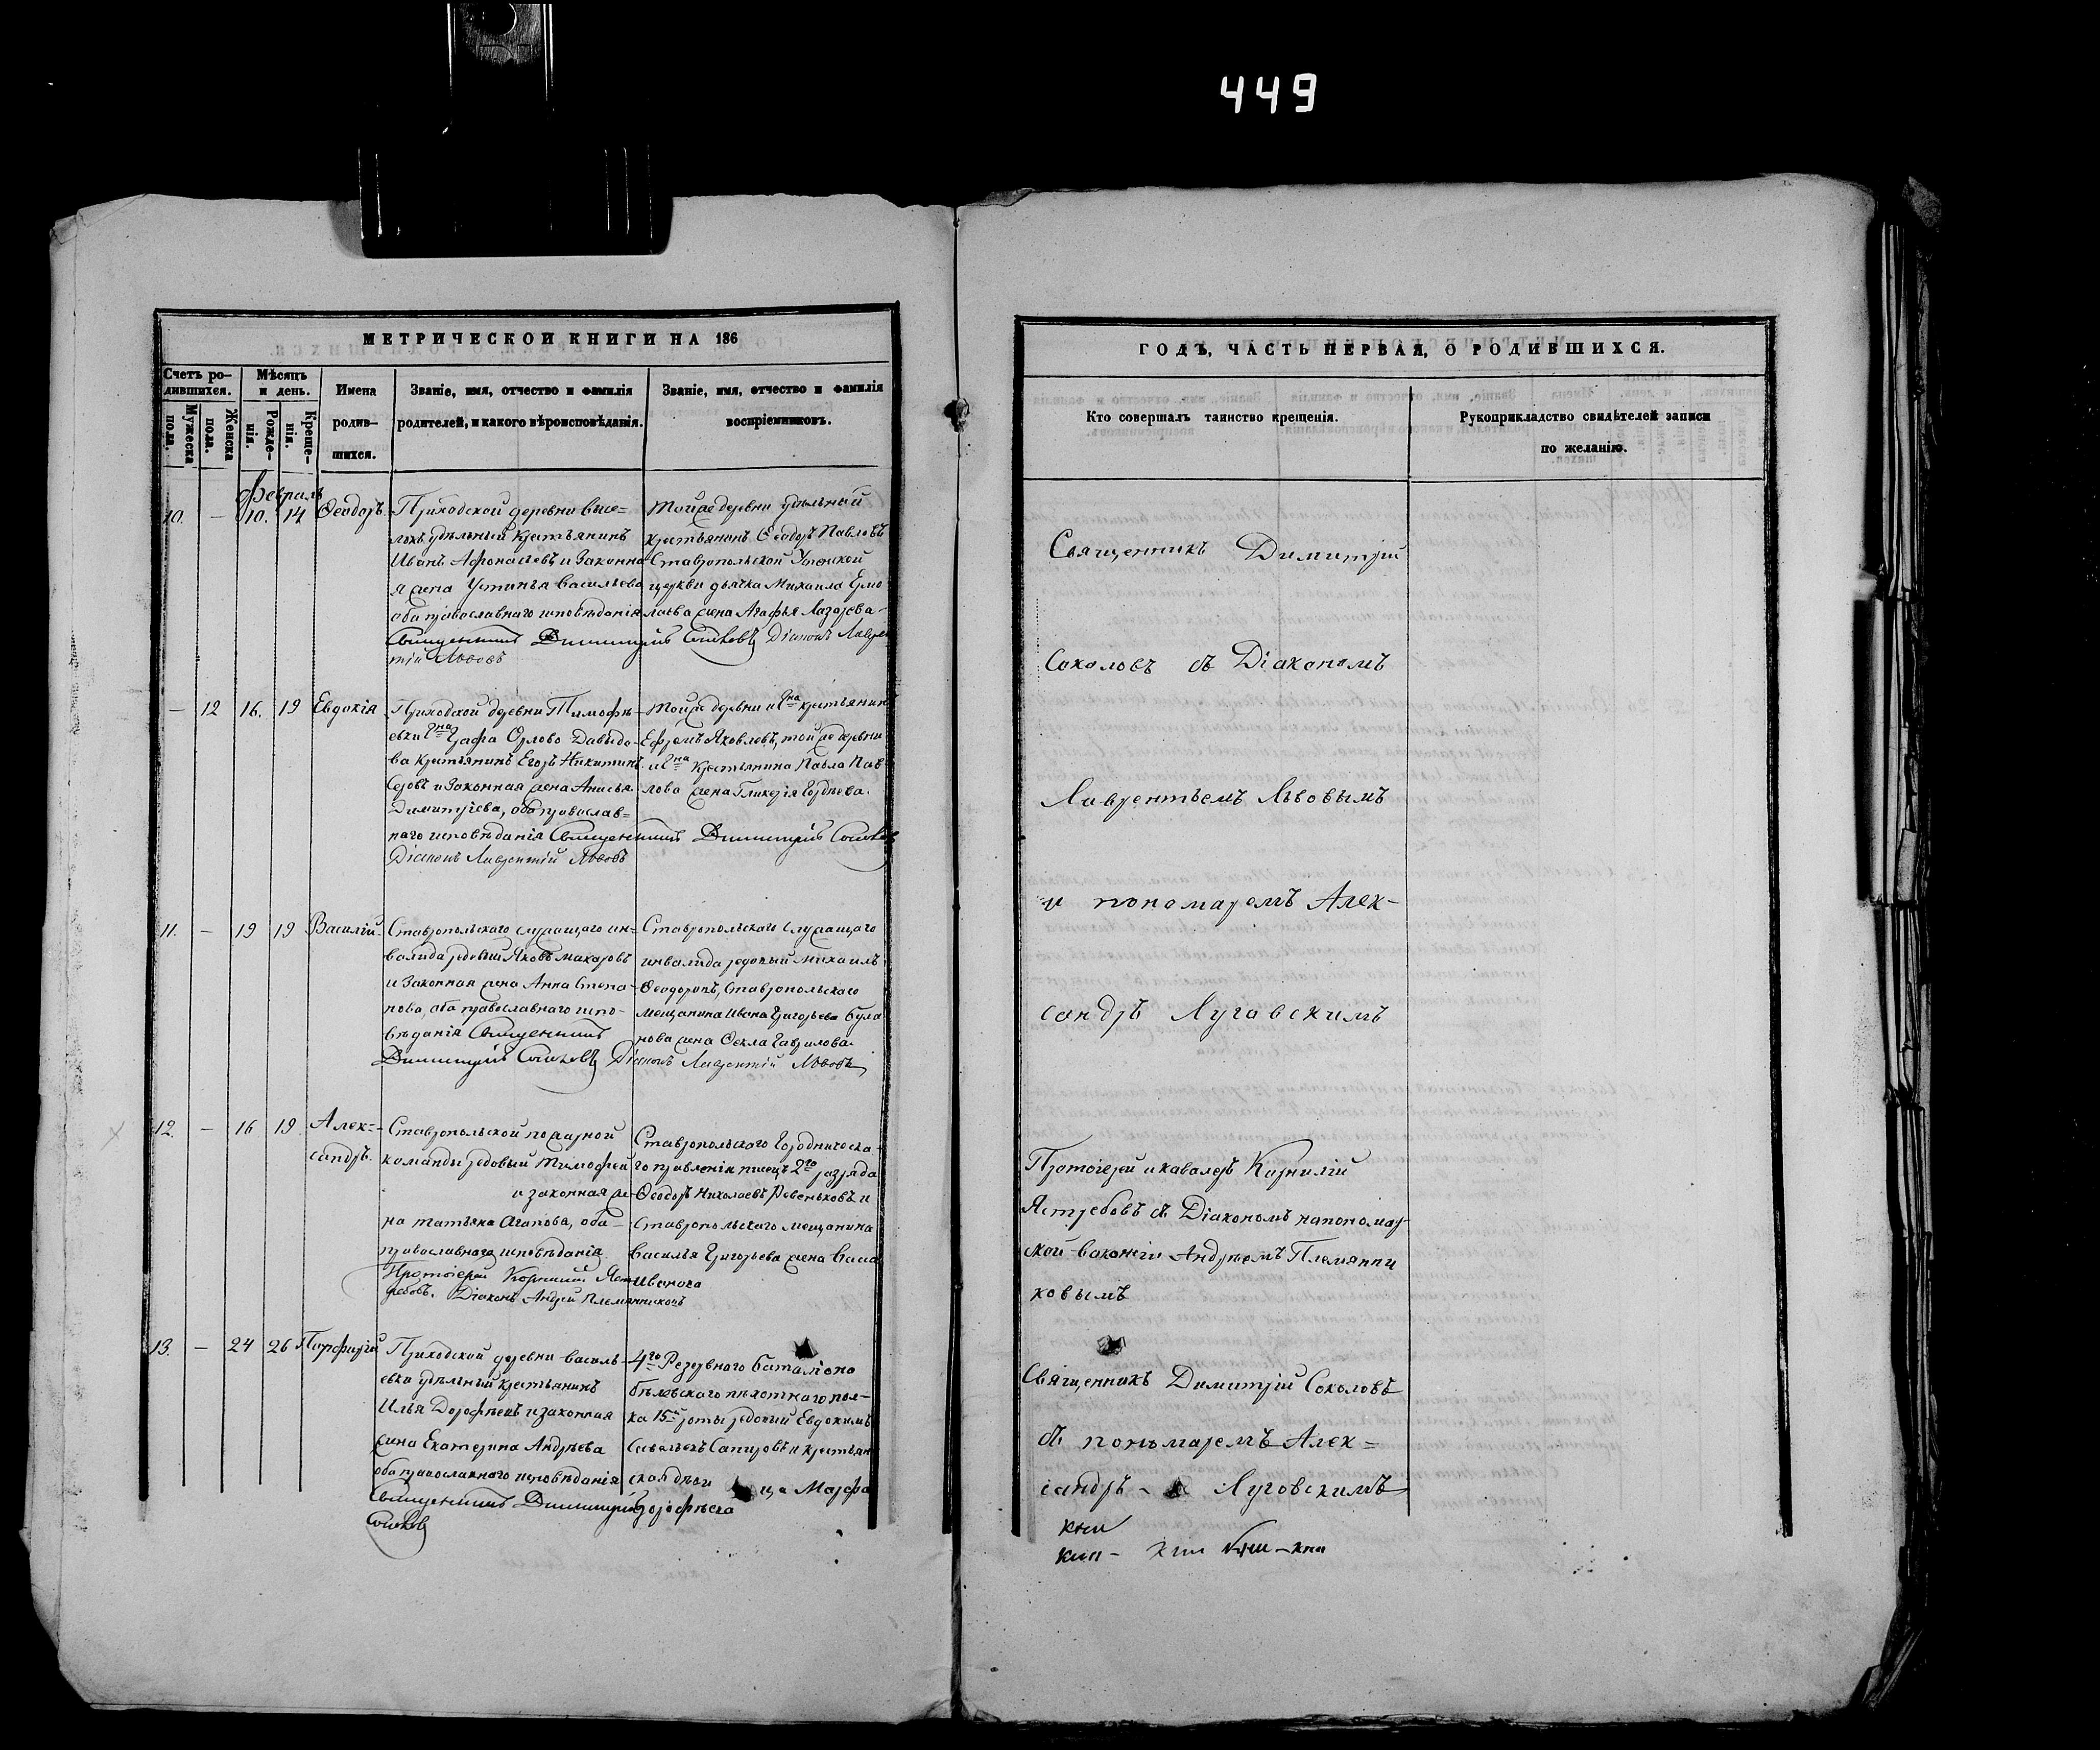 449
МЕТРИЧЕСКОИ КНИГИ НА 186
Счетъ ро-
дившихся.
Мѣсяцъ
и день.
Мужеска
пола.
Женска
пола.
Рожде-
нія.
Креще-
нія.
Имена
родив-
шихся.
Званіе, имя, отчество и фамилія
родителей, и какого вѣроисповѣданія.
Званіе, имя, отчество и фамилія
воспріемниковъ.
Февраль
10. — 10. 14 Ѳеодоръ.
Приходской деревни Высе=
локъ удѣльный крестьянинъ
Иванъ Афонасьевъ и Законна
я жена Устинья Васильева
оба православнаго исповѣданія
Тойже деревни удѣльный
крестьянинъ Ѳеодоръ Павловъ
Ставропольской Успенской
церкви дьячка Михаила Ермо
лаева жена Агафья Лазарева-
Священникъ Димитрій Соколовъ Діаконъ Лаврен
тій Львовъ
— 12 16. 19 Евдокія
Приходской деревни Тимофѣ-
евки Графа Орлово Давыдо-
ва крестьянинъ Егоръ Никитинъ
и Законная жена Анисья
Димитріева, оба православ=
наго исповѣданія
Тойже деревни крестьянинъ
Ефремъ Яковлевъ, тойже деревни
крестьянина Павла Пав
лова жена Гликерія Гордѣева.
Священникъ Димитрій Соколовъ
Діаконъ Лаврентій Львовъ
11. — 19 19 Василій.
Ставропольскаго служащаго ин-
валида рядовый Яковъ Макаровъ
и Законная жена Анна Степа-
нова, оба православнаго испо-
вѣданія Священникъ
Ставропольскаго служащаго
инвалида рядовый Михаилъ
Ѳеодоровъ, Ставропольскаго
мещанина Ивана Григорьева Була
нова жена Ѳекла Гаврилова.
Димитрій Соколовъ Діаконъ Лаврентій Львовъ
12. — 16 19 Алек=
сандръ.
Ставропольской пожарной
команды рядовый Тимофей
и законная же-
на Татьяна Агапова, оба-
православнаго исповѣданія
Протоіерей Корнилій Яст
ребовъ. Діаконъ Андрей Племянниковъ
Ставропольскаго Городническа
го правленія писецъ 2го разряда
Ѳеодоръ Николаевъ Ревеньковъ и
Ставропольскаго мещанина
Василья Григорьева жена Васса
Иванова
13. — 24 26 Порфирій
Приходской деревни Василь-
евки удѣльный крестьянинъ
Илья Дорофѣевъ и законная
жена Екатерина Андрѣева
оба православнаго исповѣданія
Священникъ Димитрій
Соколовъ
4го Резервнаго баталіона
Бѣлевскаго пѣхотнаго пол-
ка 15й роты рядовый Евдокимъ
Савельевъ Сапировъ и крестьян
ская Марфа
Дорофѣева
ГОДЪ, ЧАСТЬ ПЕРВАЯ, О РОДИВШИХСЯ.
Кто совершалъ таинство крещенія.
Рукоприкладство свидѣтелей записи
по желанію.
Священникъ Димитрій
Соколовъ съ Діакономъ
Лаврентьемъ Львовымъ
и пономаремъ Алек-
сандръ Луговскимъ
Протоіерей и кавалеръ Корнилій
Ястребовъ съ Діакономъ на пономар-
ской вакансіи Андрѣемъ Племянни
ковымъ
Священникъ Димитрій Соколовъ
съ пономаремъ Алек=
сандръ - Луговскимъ